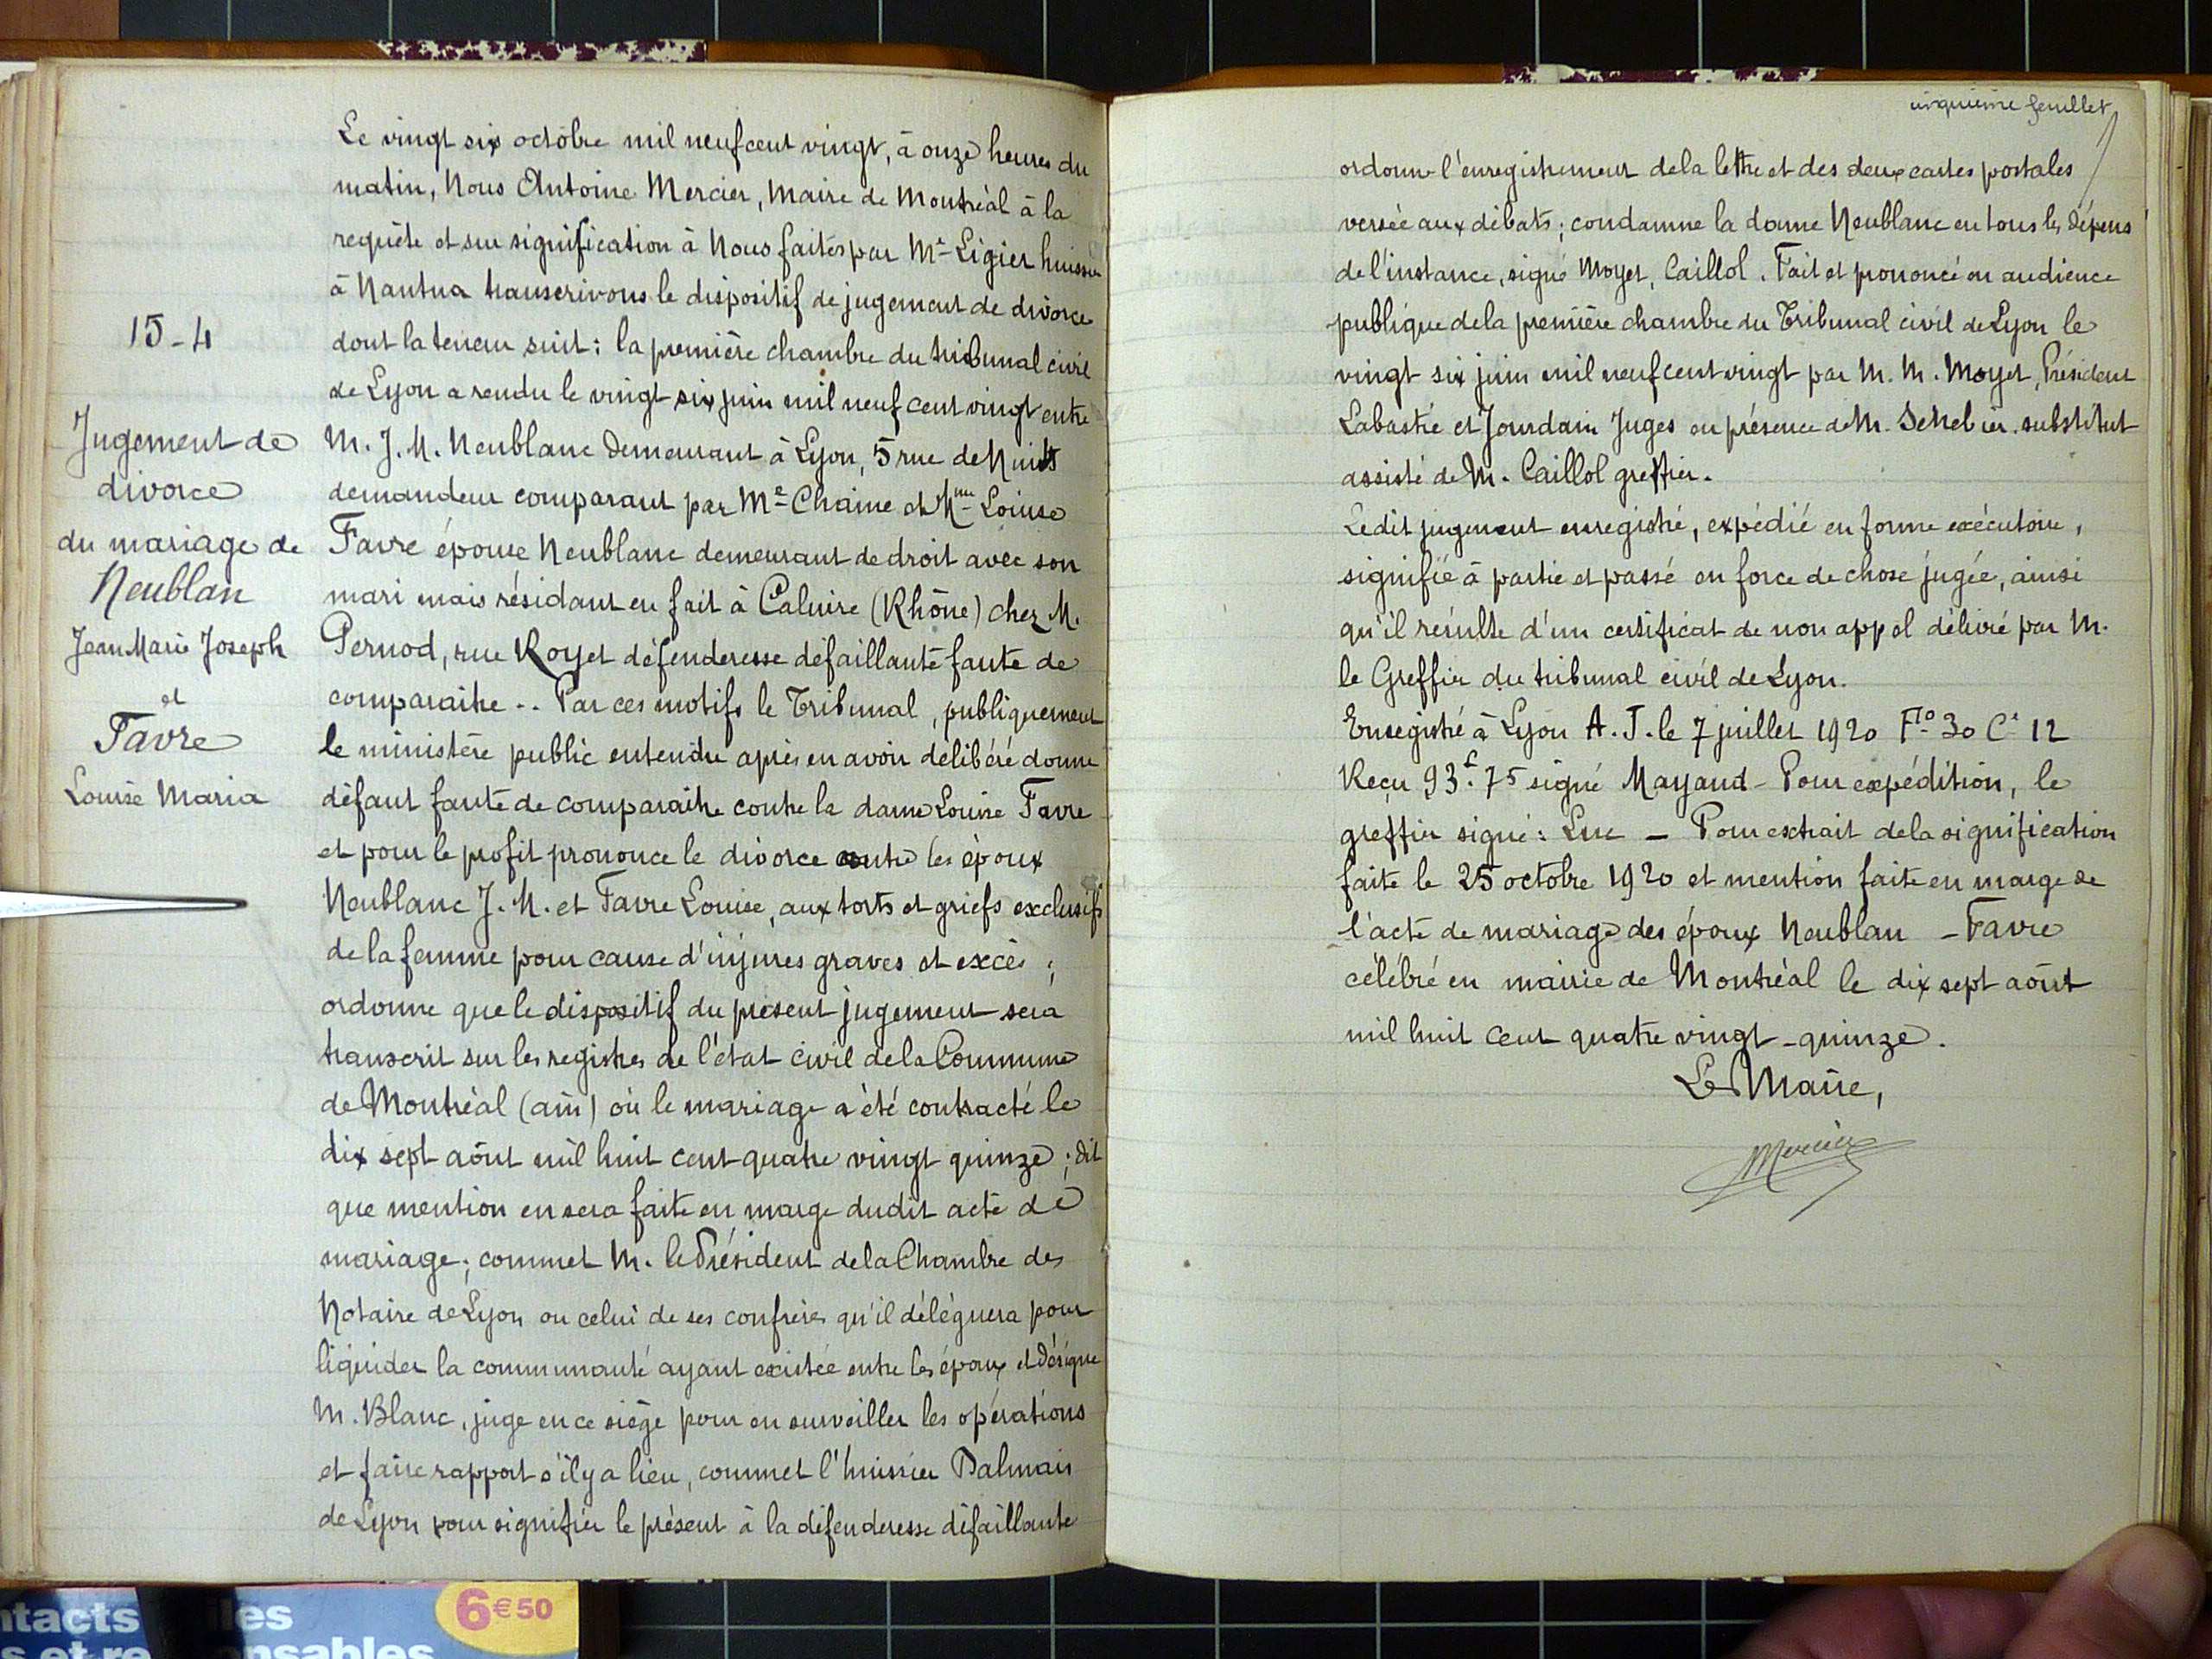 15-4
Jugement de
divorce
du mariage de
Neublan
Jean Marie Joseph
et
Favre
Louise Maria
Le vingt six octobre mil neuf cent vingt, à onze heures du
matin, Nous Antoine Mercier, Maire de Montréal à la
requête et sur signification à Nous faites par Me Ligier huissier
à Nantua transcrivons le dispositif de jugement de divorce
dont la teneur suit : la première chambre du tribunal civil
de Lyon a rendu le vingt six juin mil neuf cent vingt entre
M. J. M. Neublanc demeurant à Lyon, 5 rue de Nuits
demandeur comparant par Me Chaine et Mme Louise
Favre épouse Neublanc demeurant de droit avec son
mari mais résidant en fait à Caluire (Rhône) chez M.
Pernod, rue Royet défenderesse défaillante faute de
comparaitre .. Par ces motifs le Tribunal, publiquement
le ministère public entendu après en avoir délibéré donne
défaut faute de comparaitre contre la dame Louise Favre
et pour le profit prononce le divorce entre les époux
Neublanc J. M. et Favre Louise, aux torts et griefs exclusifs
de la femme pour cause d'injures graves et excès ;
ordonne que le dispositif du présent jugement sera
transcrit sur les registres de l'état civil de la Commune
de Montréal (ain) où le mariage a été contracté le
dix sept août mil huit cent quatre vingt quinze ; dit
que mention en sera faite en marge dudit acte de
mariage ; commet M. le Président de la Chambre des
Notaire de Lyon ou celui de ses confrères qu'il déléguera pour
liquider la communauté ayant existée entre les époux et désigne
M. Blanc, juge en ce siège pour en surveiller les opérations
et faire rapport s'il y a lieu, commet l'huissier Dalmais
de Lyon pour signifier le présent à la défenderesse défaillante
cinquième feuillet
ordonne l'enregistrement de la lettre et des deux cartes postales
versée aux débats ; condamne la dame Neublanc en tous les dépens
de l'instance, signé Moyet, Caillol. Fait et prononcé en audience
publique de la première chambre du Tribunal civil de Lyon le
vingt six juin mil neuf cent vingt par M. M. Moyet, Président
Labastié et Jourdain Juges en présence de M. substitut
assisté de M. Caillol greffier.
Ledit jugement enregistré, expédié en forme exécutoire,
signifié à partie et passé en force de chose jugée, ainsi
qu'il résulte d'un certificat de non appel délivré par M.
le Greffier du tribunal civil de Lyon.
Enregistré à Lyon A. J. le 7 juillet 1920 Fio 30 Ce 12
Reçu 93f.75 signé Mayaud - Pour expédition, le
greffier signé : Luc - Pour extrait de la signification
faite le 25 octobre 1920 et mention faite en marge de
l'acte de mariage des époux Neublan - Favre
célébré en mairie de Montréal le dix sept août
mil huit cent quatre vingt-quinze.
Le Maire,
Mercier
ntacts
les
s et re
nsables
6€50